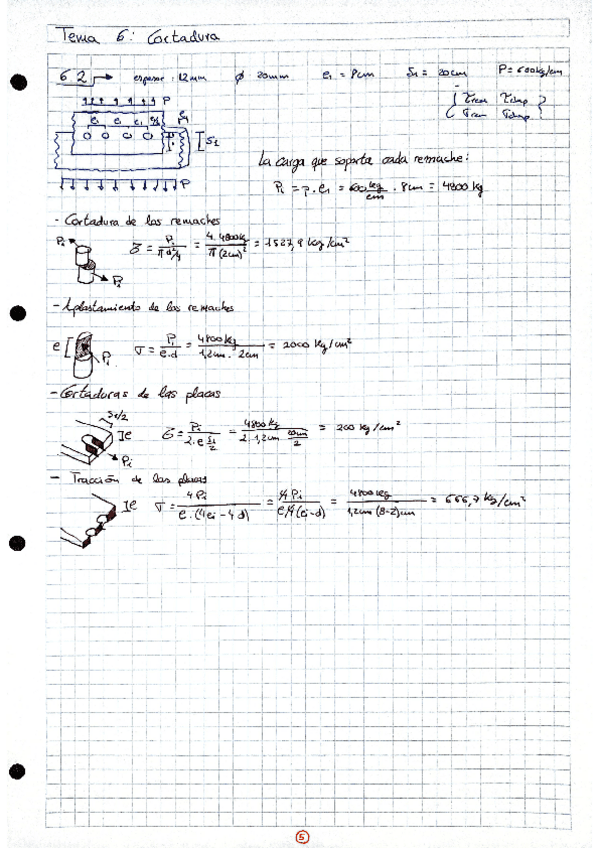 Tema 6: Cortadura
6 2 espesor: 12mm ϕ 20mm e₁ = 8cm S₁ = 20cm P = 600kg/cm
P
P
S₂
La carga que soporta cada remache:
Pᵢ = p · e₁ = 600 kg/cm · 8cm = 4800 kg
- Cortadura de los remaches
Pᵢ Pᵢ
τ = Pᵢ/(π d²/4) = 4·4800kg/(π(2cm)²) = 1527,9 kg/cm²
- Aplastamiento de los remaches
e Pᵢ
σ = Pᵢ/(e·d) = 4800kg/(1,2cm · 2cm) = 2000 kg/cm²
- Cortaduras de las placas
S₁/2 e Pᵢ
τ = Pᵢ/(2·e S₁/2) = 4800kg/(2·1,2cm 20cm/2) = 200 kg/cm²
- Tracción de las placas
e
σ = 4Pᵢ/(e·(4eᵢ-4d)) = 4Pᵢ/(e4(eᵢ-d)) = 4800kg/(1,2cm(8-2)cm) = 666,7 kg/cm²
5